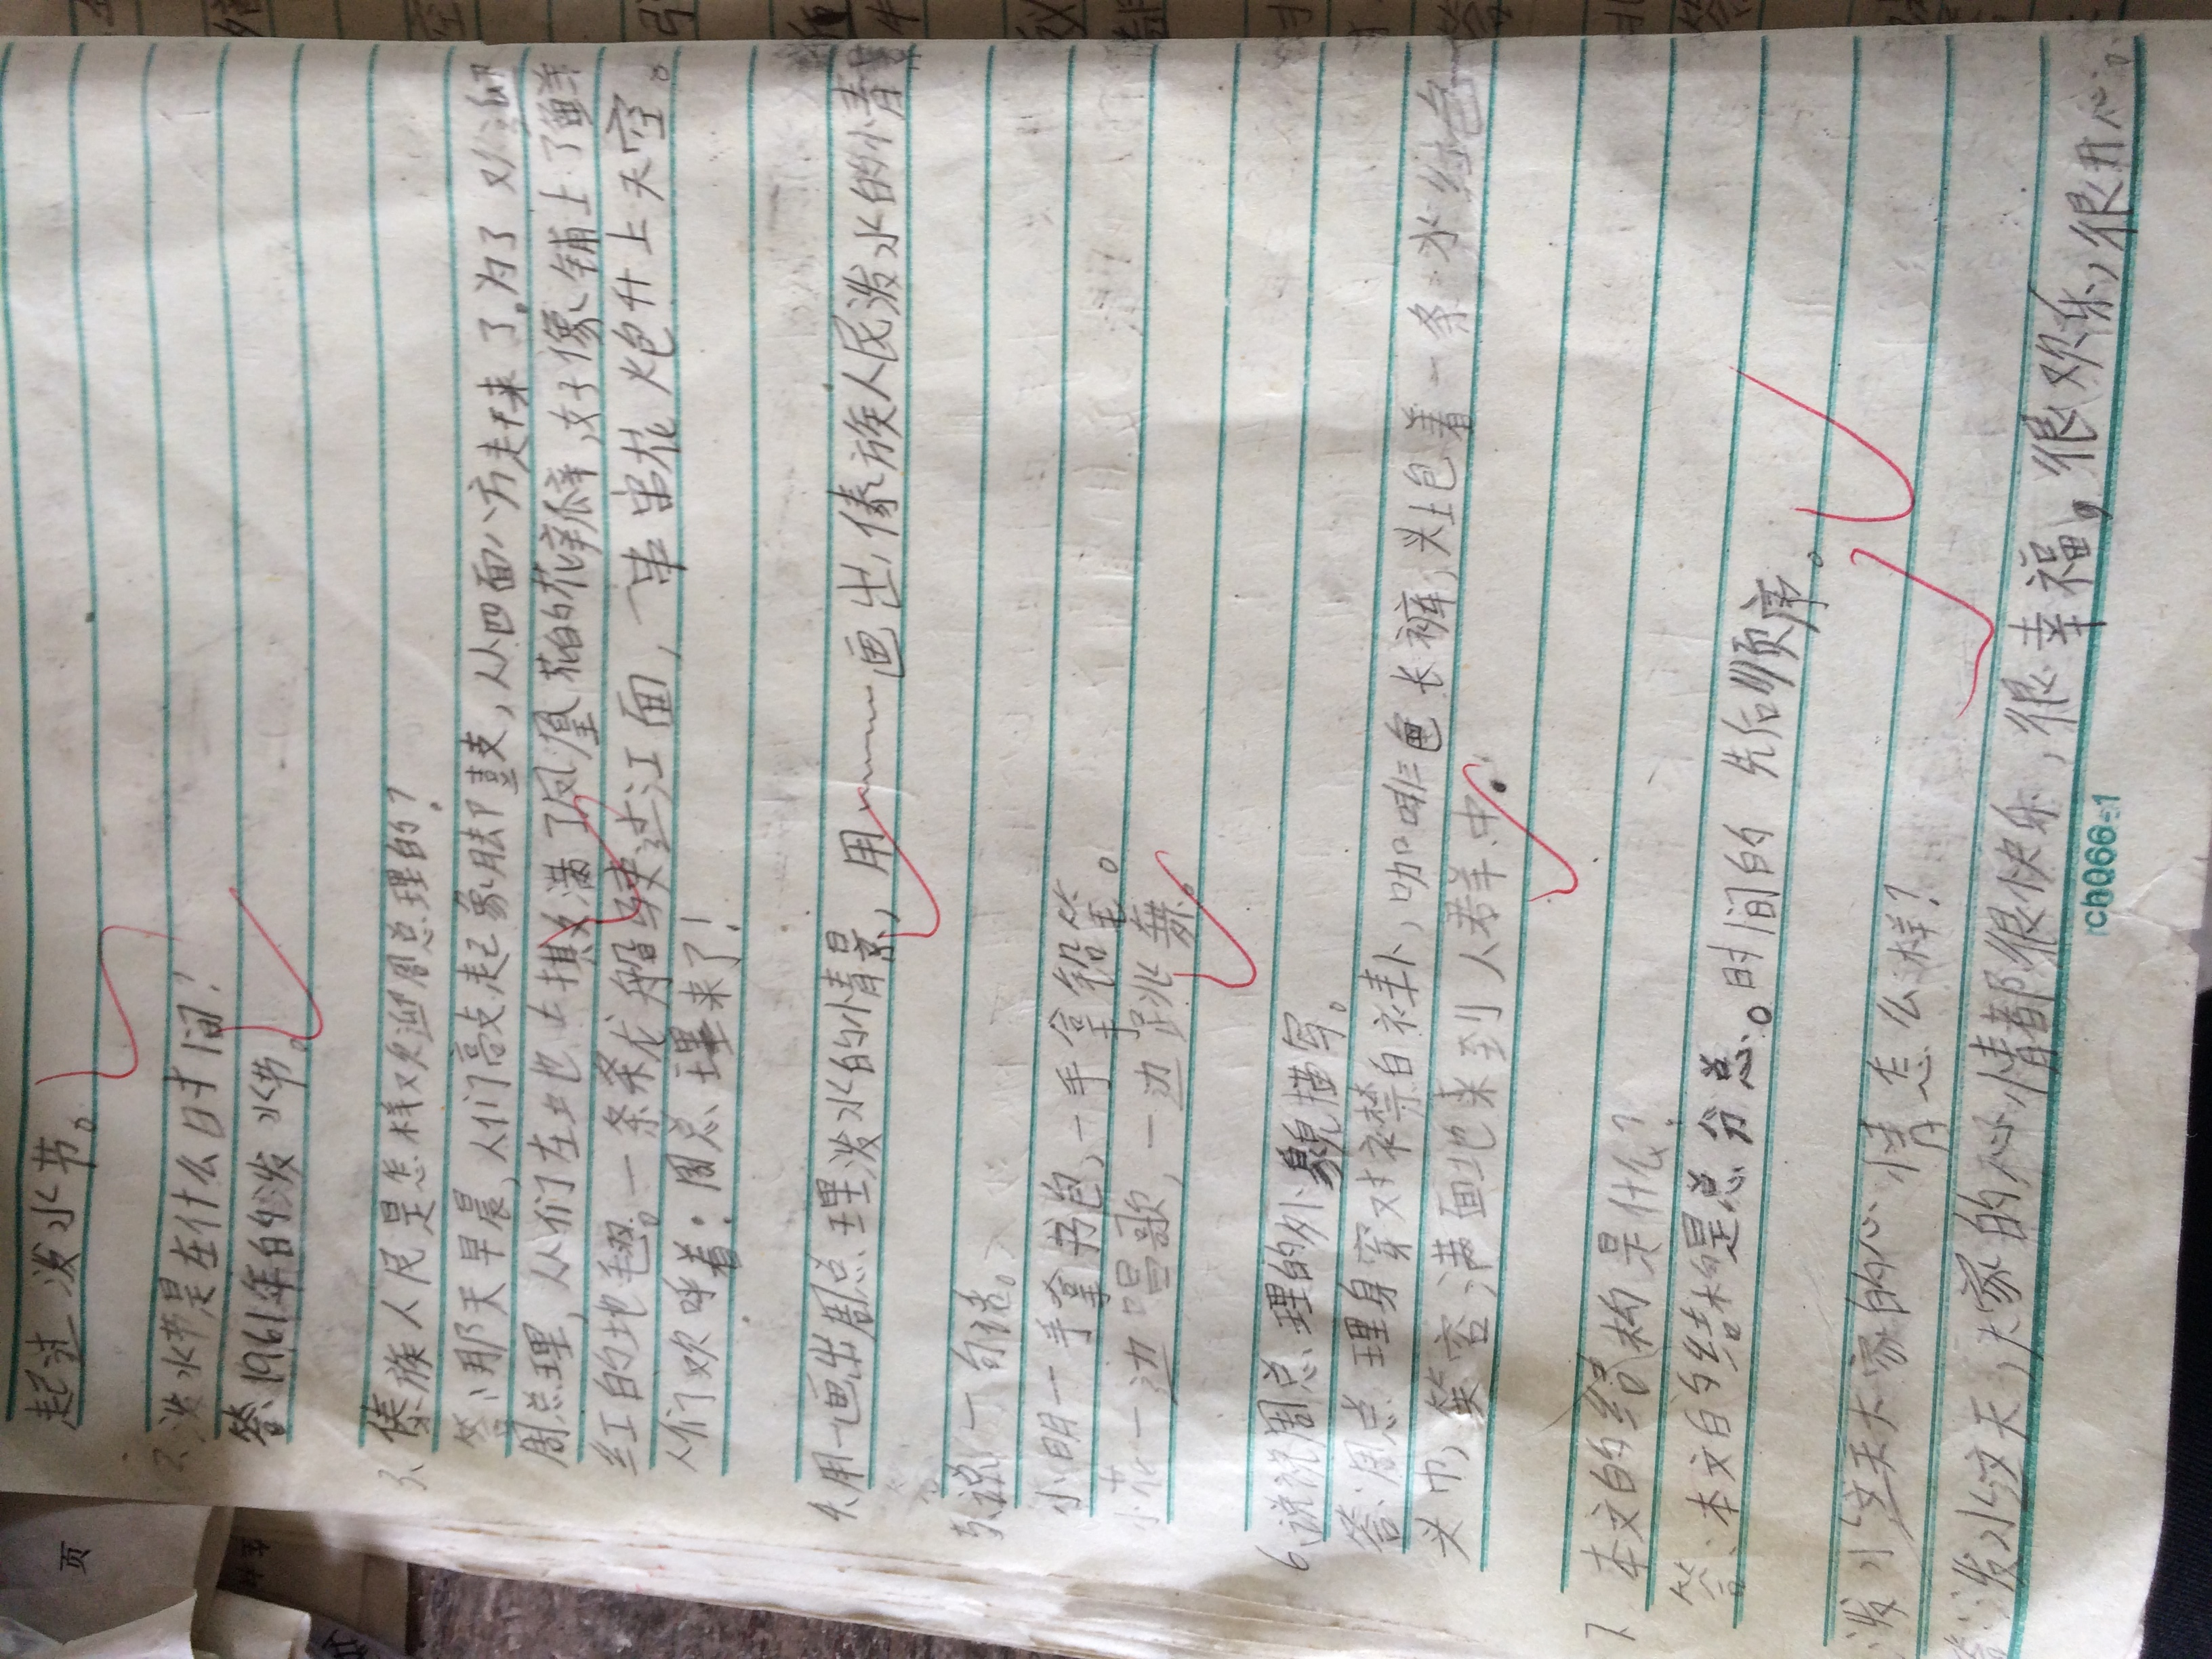 起过泼水节。
2、泼水节是在什么时间?
答:1961年的泼水节。
3、傣族人民是怎样欢迎周总理的?
答:那天早晨,人们高敲起象脚鼓,从四面八方走来了。为了欢迎
周总理,人们在地上撒满了凤凰花的花瓣,好像铺上了鲜
红的地毯。一条条龙船驶过江面,一串串花炮升上天空。
人们欢呼着:周总理来了!
4、用—画出周总理泼水的情景,用﹏﹏画出傣族人民泼水的情景
5、说一句话。
小明一手拿书包,一手拿铅笔。
小花一边唱歌,一边跳舞。
6、说说周总理的外貌描写。
答:周总理身穿对襟白褂,咖啡色长裤,头上包着一条水红色
头巾,笑容满面地来到人群中。
7、本文的结构是什么?
答:本文的结构是总分总。时间的先后顺序。
泼水这天大家的心情怎么样?
答:泼水这天,大家的心情都很快乐,很幸福,很欢乐,很开心。
ch066-1
页